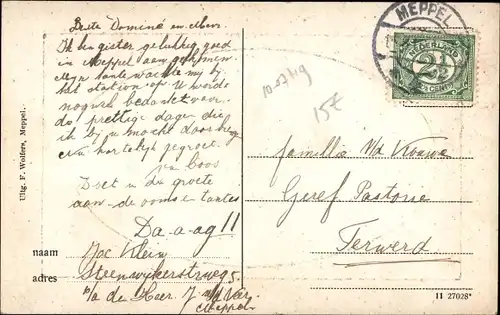 Beste Dominé en Mevr.
Ik ben gister gelukkig goed
in Meppel aangekomen
Mijn tante wachtte mij bij
het station op U wordt
nogwel bedankt voor
de prettige dagen die
ik bij U mocht doorbrengen
en hartelijk gegroet.
van Coos
Doet u de groete
aan de ooms en tantes
Da-a-ag!!
naam Jac Klein
adres Steenwijkerstrweg 5
p/a de Heer J. v/d
Meppel
Uitg. F. Wolfers, Meppel.
MEPPEL
NEDERLAND
2½
CENT
10-07 419
15E
familie v/d
Geref Pastorie
Ferwerd
11 27028*